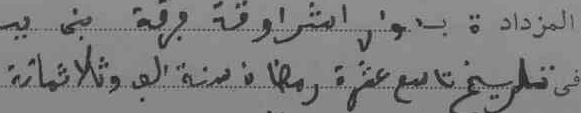 المزدادة بدوار اشراوقة فرقة بني
في تاريخ تاسع عشرة رمضان سنة الف وثلاثمائة